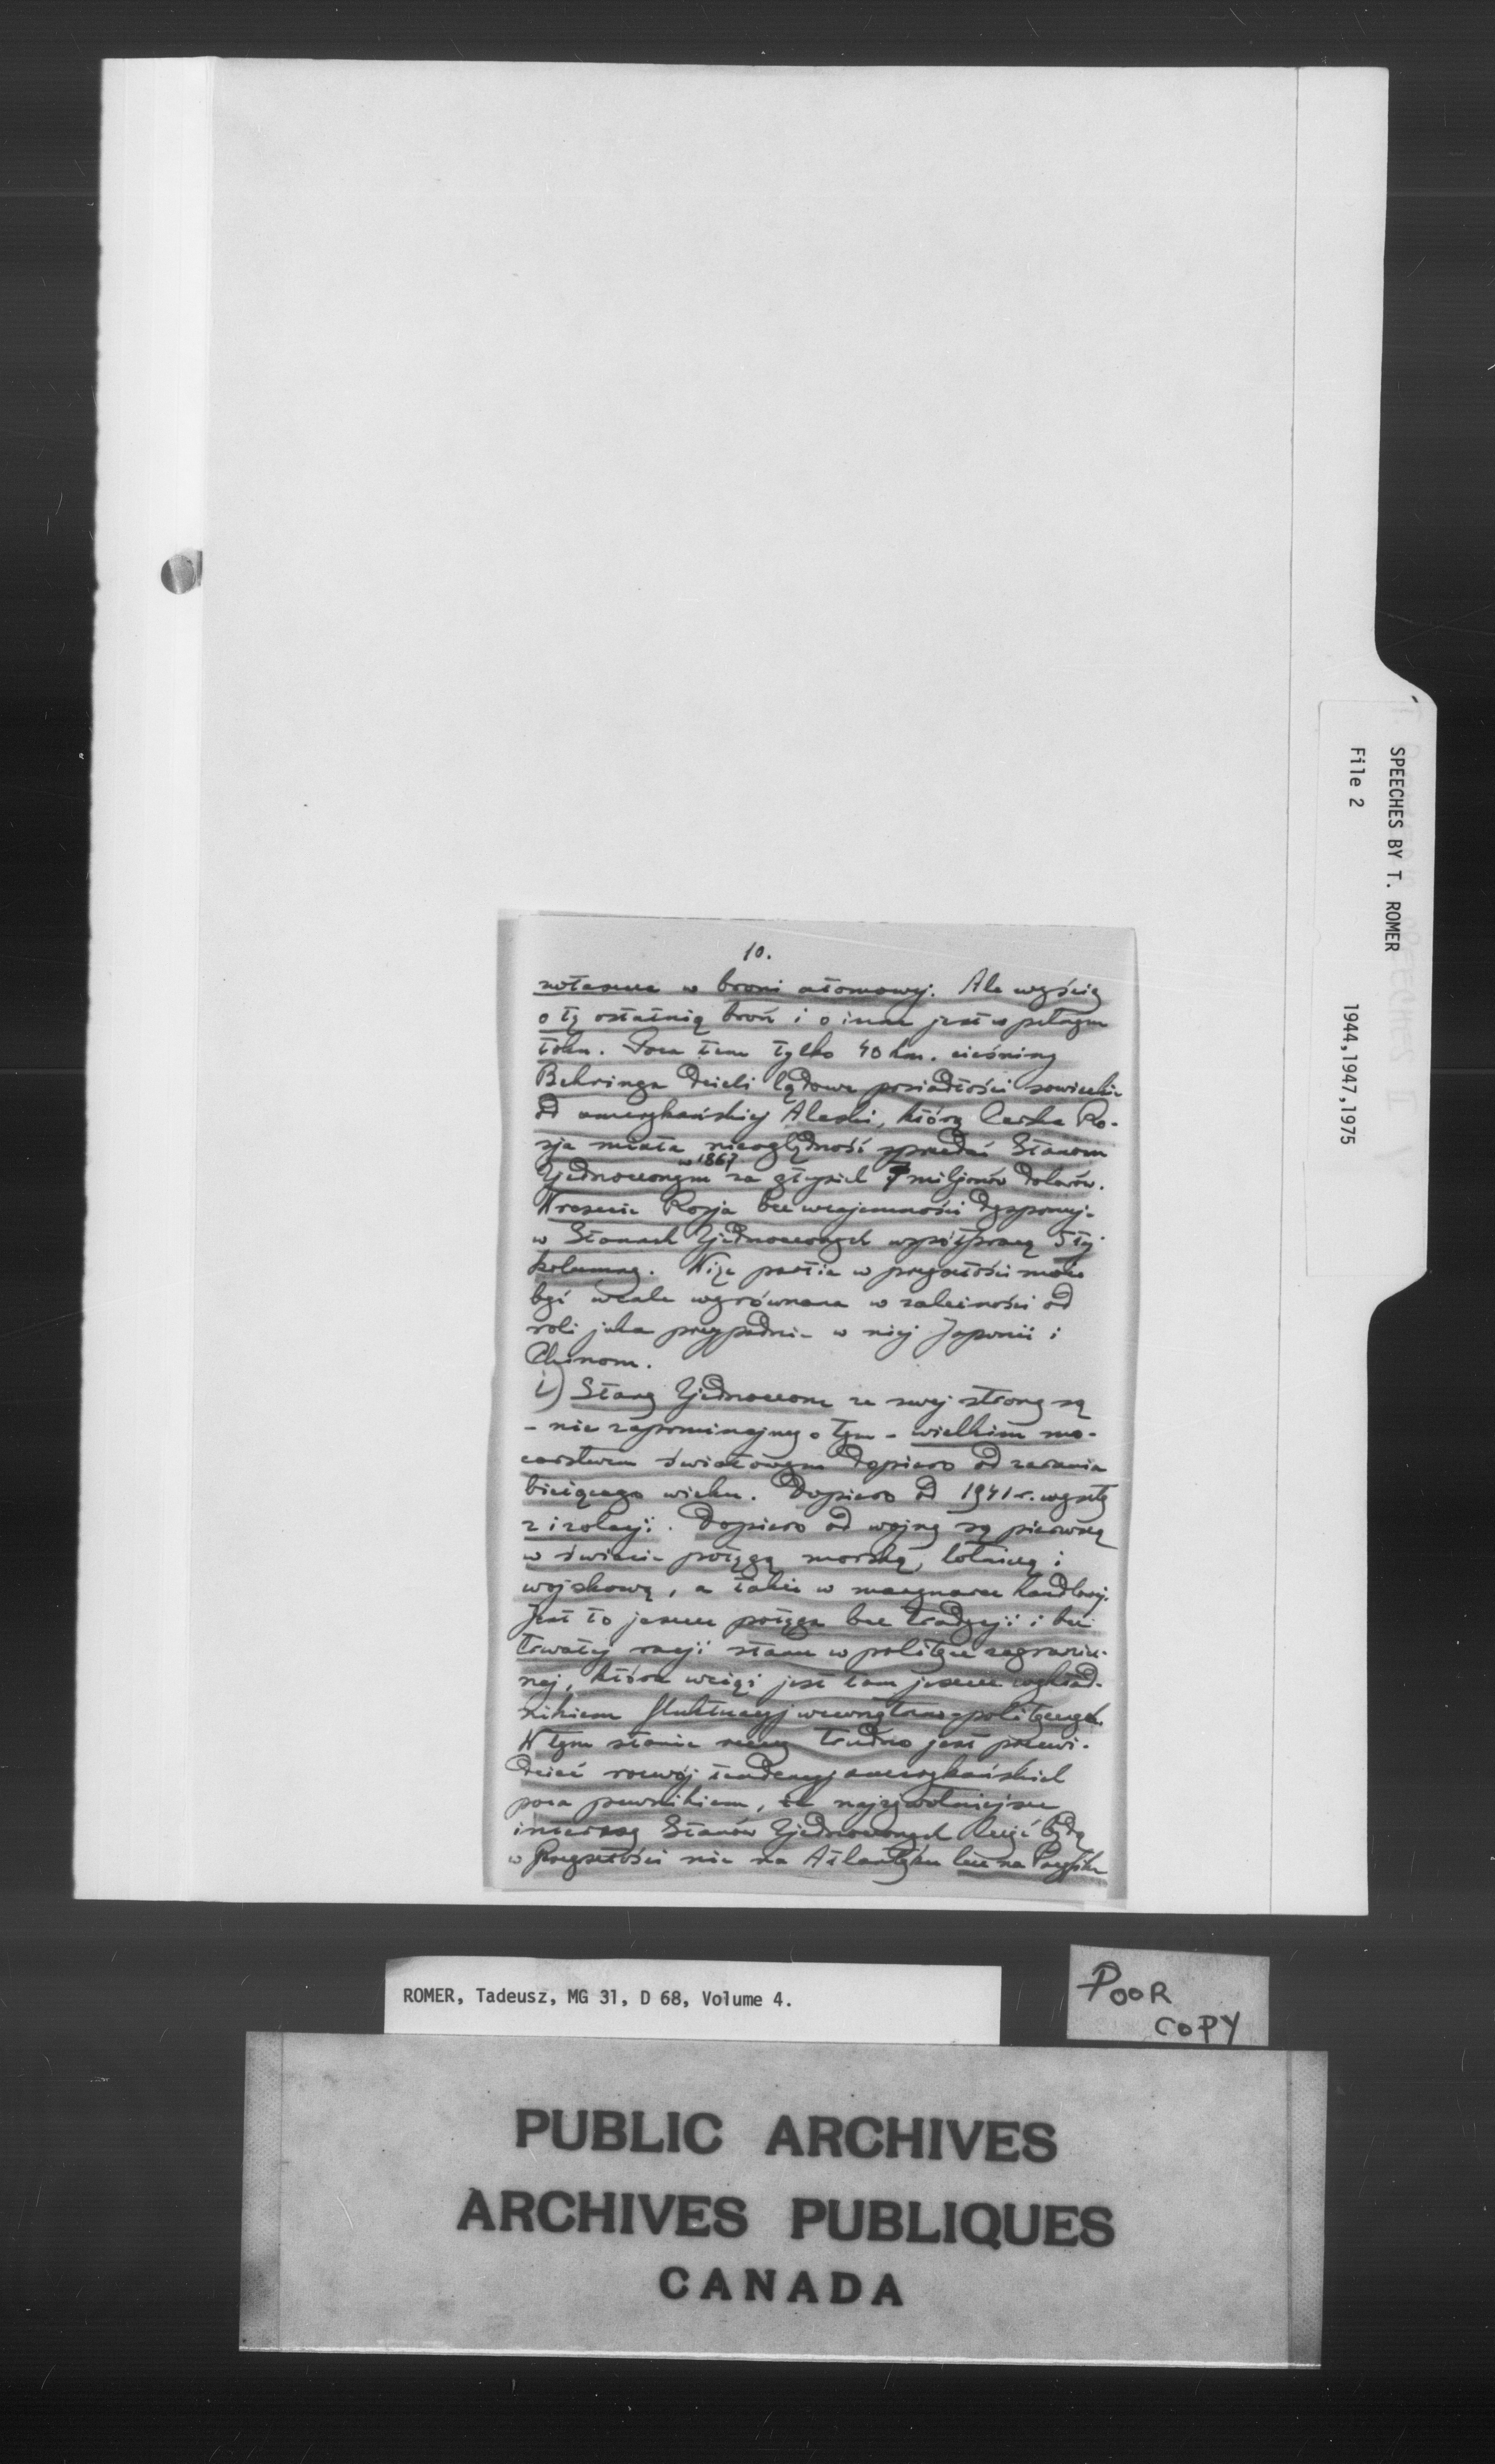 SPEECHES BY T. ROMER
File 2 1944,1947,1975
10.
zwłaszcza w broni atomowej. Ale wyścig
o tę ostatnią broń i o inne jest w pełnym
toku. Poza tem tylko 40 km. cieśniny
Behringa dzieli lądowe posiadłości sowieckie
od amerykańskiej Alaski, którą Carska Ro-
sja miała nieoględność sprzedać Stanom
w 1867
Zjednoczonym za głupich 7 miljonów dolarów.
Wreszcie Rosja bez wzajemności dysponuje
w Stanach Zjednoczonych współpracą 5tej
kolumny. Więc partia w przyszłości może
być wcale wyrównana w zależności od
roli jaka przypadnie w niej Japonii i
Chinom.
i) Stany Zjednoczone ze swej strony są
- nie zapominajmy o tym - wielkim mo-
carstwem światowym dopiero od zarania
bieżącego wieku. Dopiero od 1941 r. wyszły
z izolacji. Dopiero od wojny są pierwszą
w świecie potęgą morską, lotniczą i
wojskową, a także w marynarce handlowej.
Jest to jeszcze potęga bez tradycji i bez
trwałej racji stanu w polityce zagranicz-
nej, która wciąż jest tam jeszcze wykład-
nikiem fluktuacyj wewnętrzno-politycznych.
W tym stanie rzeczy trudno jest przewi-
dzieć rozwój tendencyj amerykańskich
poza pewnikiem, że najżywotniejsze
interesy Stanów Zjednoczonych leżeć będą
w przyszłości nie na Atlantyku lecz na Pacyfiku
ROMER, Tadeusz, MG 31, D 68, Volume 4.
POOR
COPY
PUBLIC ARCHIVES
ARCHIVES PUBLIQUES
CANADA